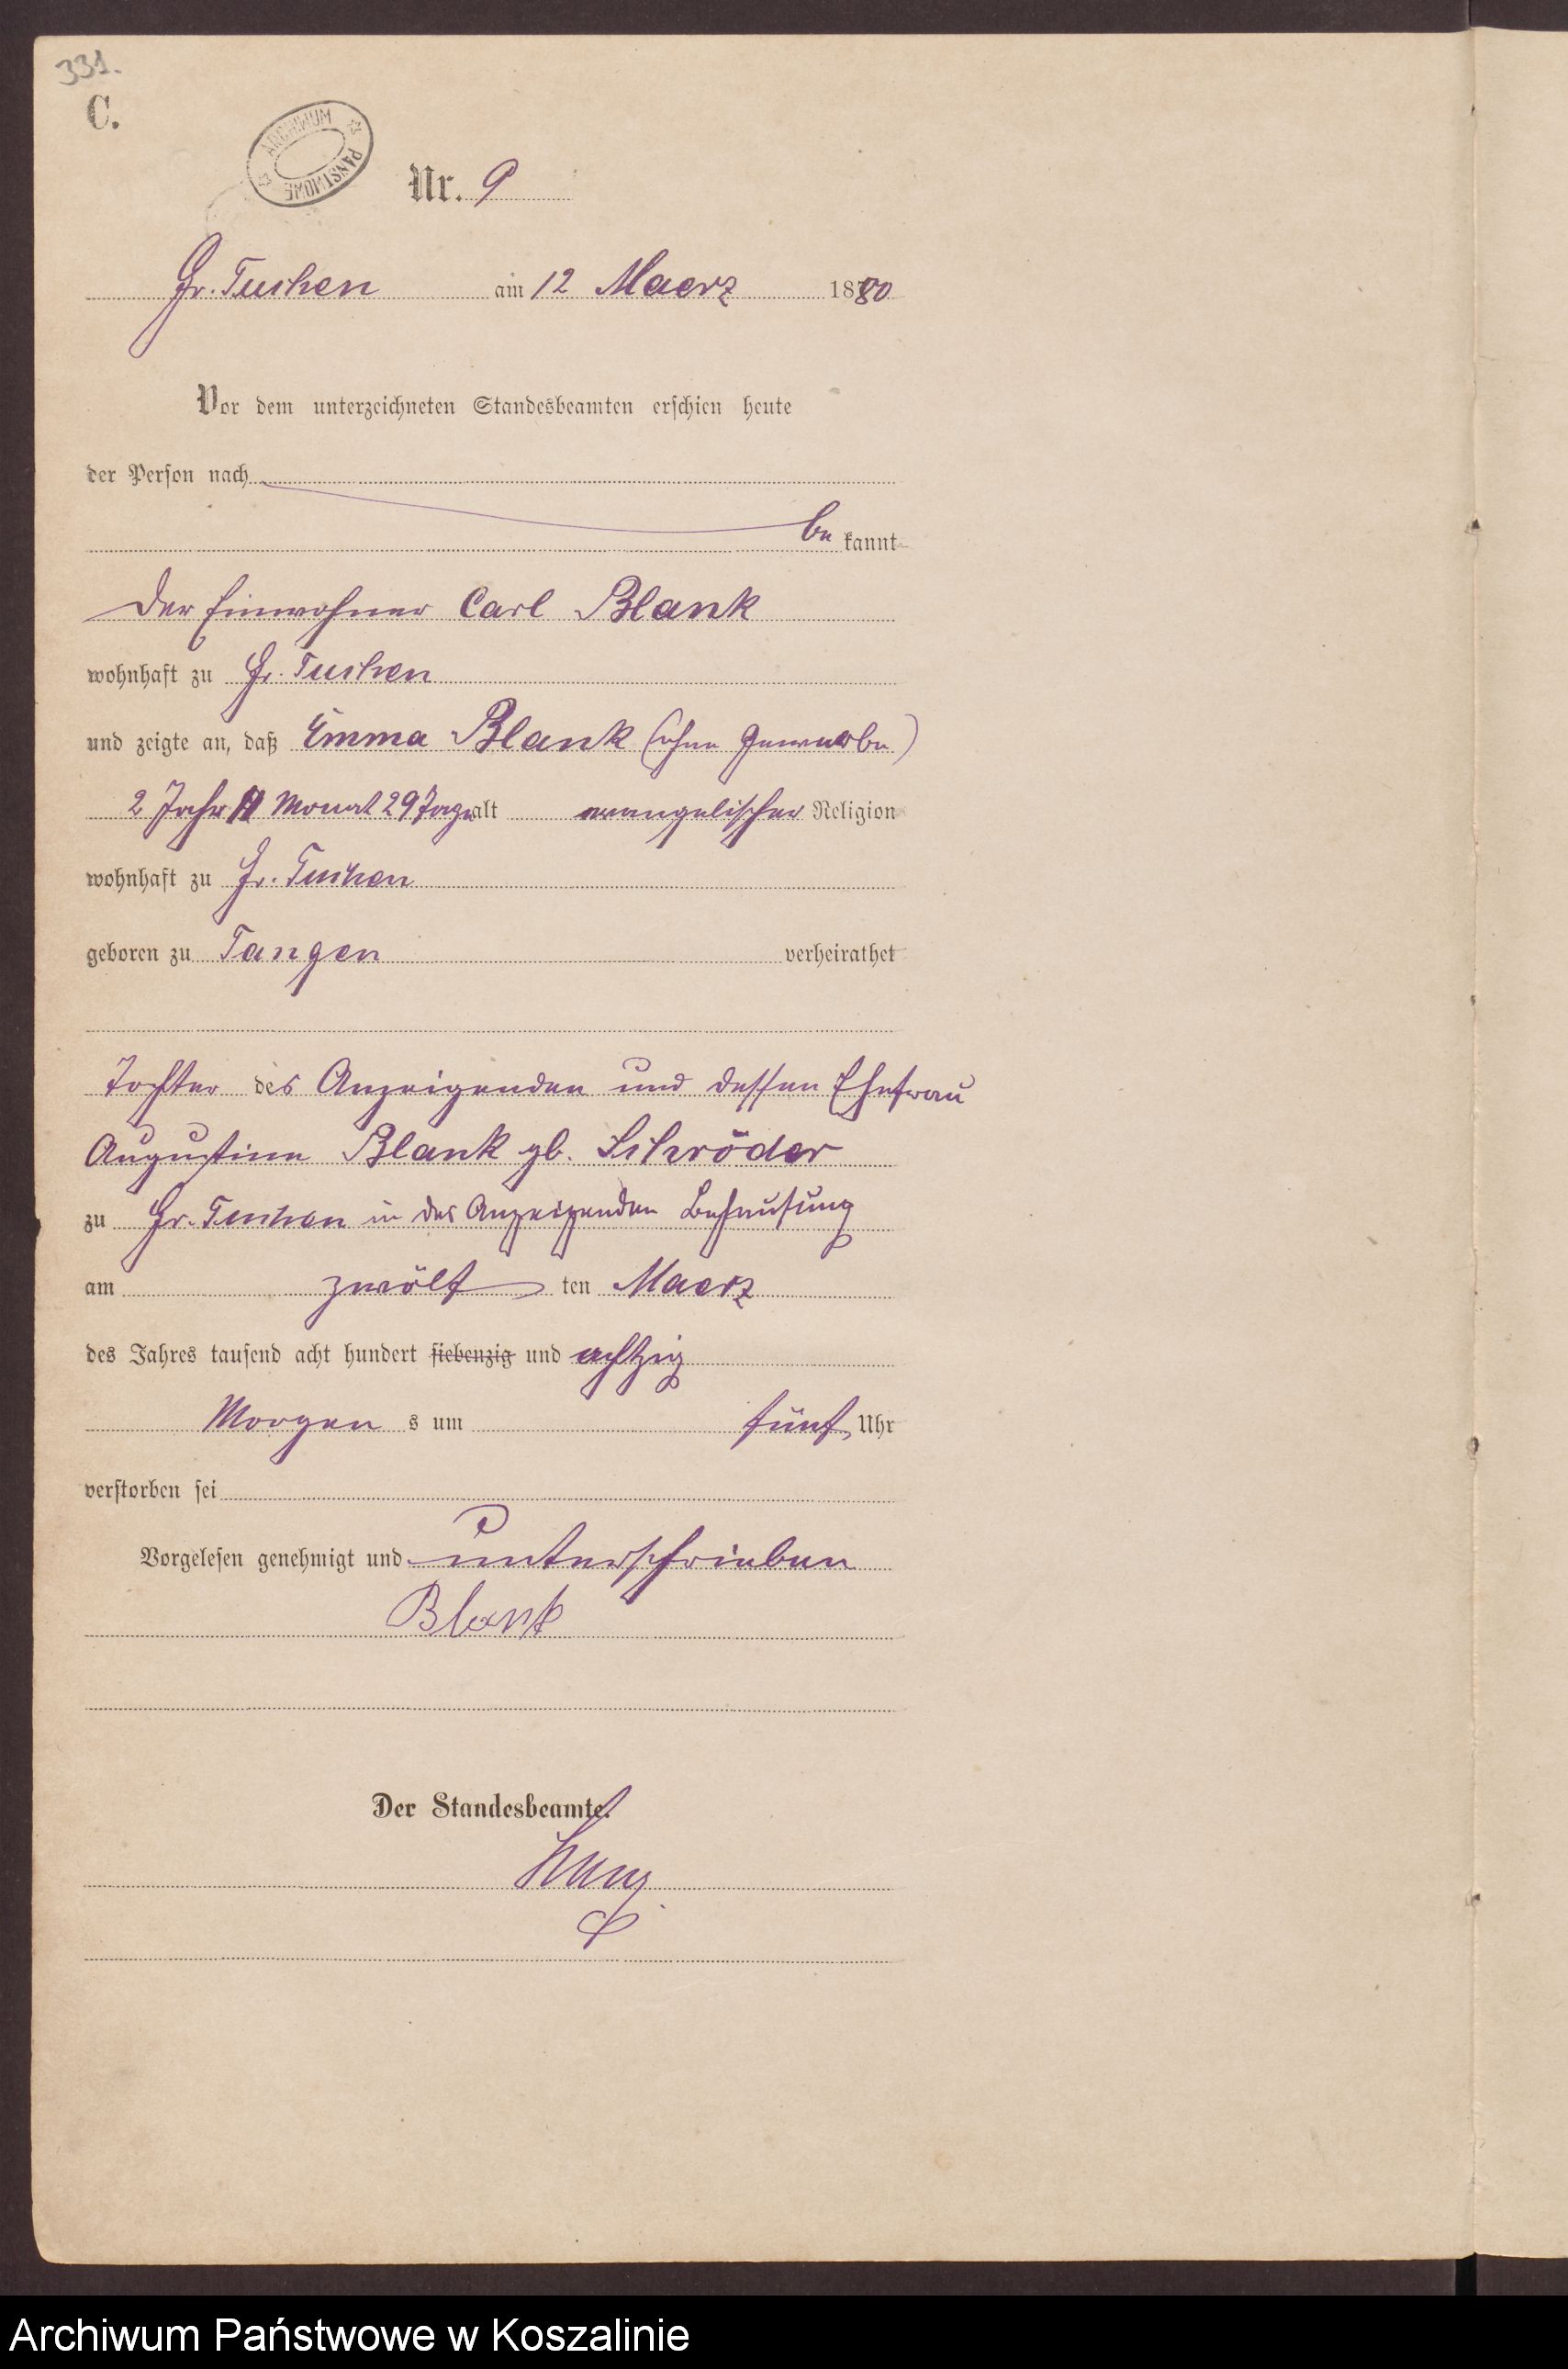 331.
C.
ARCHIWUM PAŃSTWOWE
Nr. 9
Gr. Tuchen am 12 Maerz 1880
Vor dem unterzeichneten Standesbeamten erschien heute
der Person nach
be kannt
der Einwohner Carl Blank
wohnhaft zu Gr. Tuchen
und zeigte an, daß Emma Blank (ohne Gewerbe)
2 Jahr 11 Monat 29 Tage alt evangelischer Religion
wohnhaft zu Gr. Tuchen
geboren zu Tangen verheirathet
Tochter des Anzeigenden und dessen Ehefrau
Augustine Blank gb. Schröder
zu Gr. Tuchen in des Anzeigenden Behausung
am zwölf ten Maerz
des Jahres tausend acht hundert siebenzig und achtzig
Morgen s um fünf Uhr
verstorben sei
Vorgelesen genehmigt und unterschrieben
Blank
Der Standesbeamte.
Archiwum Państwowe w Koszalinie